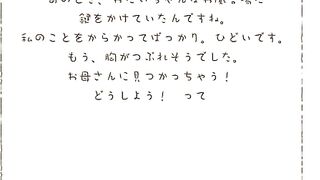 鍵をかけていたんですね。
私のことをからかってばっかり。ひどいです。
もう、胸がつぶれそうでした。
お母さんに見つかっちゃう！
どうしよう！ って